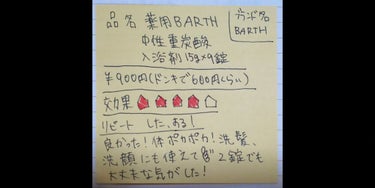 品名 薬用BARTH
ブランド名
BARTH
中性重炭酸
入浴剤15g×9錠
¥900円(ドンキで600円くらい)
効果
リピート した、ある!
良かった!体ポカポカ!洗髪、
洗顔にも使えて 2錠でも
大丈夫な気がした!